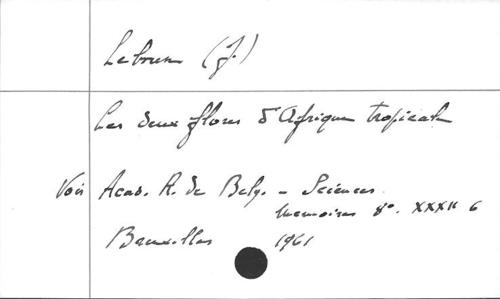 Lebrun (J.)
Les deux flores d'Afrique tropicale
Voir Acad. R. de Belg. - Sciences
Memoires 8°. XXXII 6
Bruxelles 1961